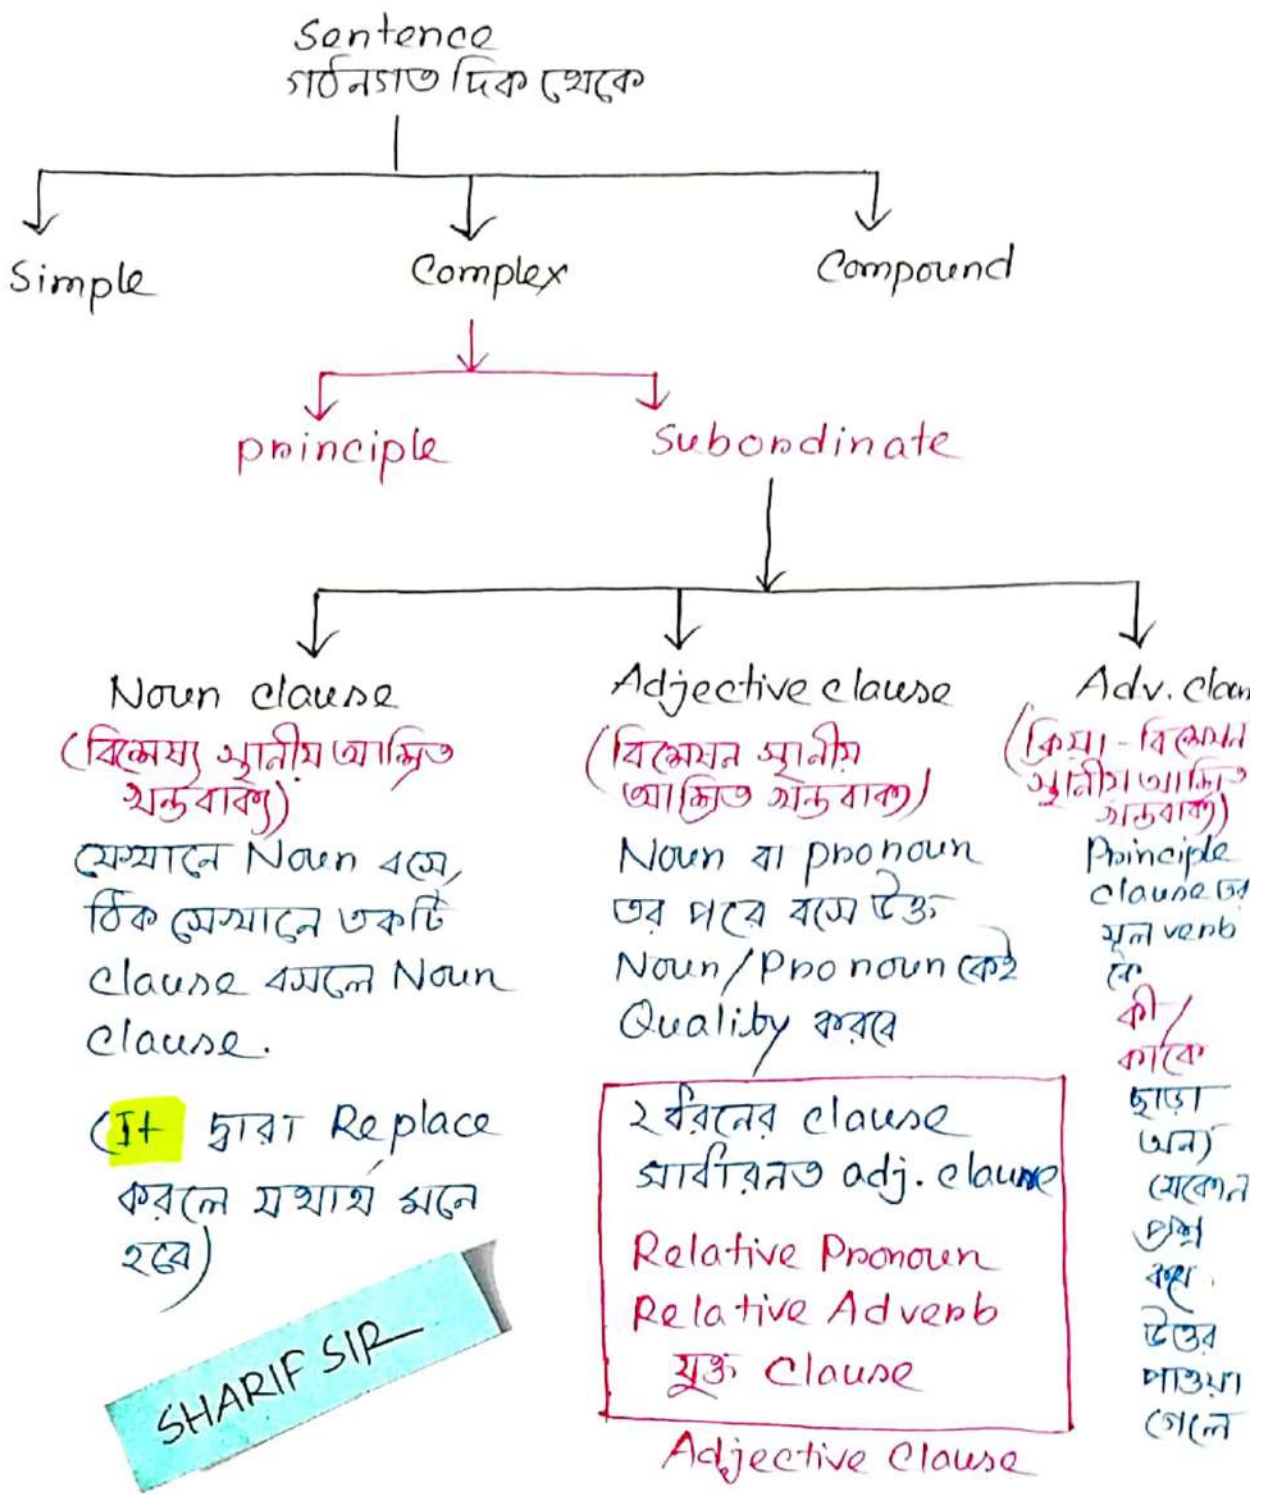 Sentence
গঠনগত দিক থেকে
Simple
Complex
Compound
principle
Subordinate
Noun clause
(বিশেষ্য স্থানীয় আশ্রিত
খন্ডবাক্য)
যেখানে Noun বসে,
ঠিক সেখানে একটি
clause বসলে Noun
clause.
(It দ্বারা Replace
করলে যথার্থ মনে
হবে)
SHARIF SIR
Adjective clause
(বিশেষন স্থানীয়
আশ্রিত খন্ডবাক্য)
Noun বা pronoun
এর পরে বসে উক্ত
Noun/Pronoun কেই
Quality করবে
২ ধরনের clause
সাধারনত adj. clause
Relative Pronoun
Relative Adverb
যুক্ত Clause
Adjective Clause
Adv. clau
(ক্রিয়া-বিশেষন
স্থানীয় আশ্রিত
খন্ডবাক্য)
Principle
clause এর
মূল verb
কে
কী/
কাকে
ছাড়া
অন্য
যেকোন
প্রশ্ন
করে
উত্তর
পাওয়া
গেলে